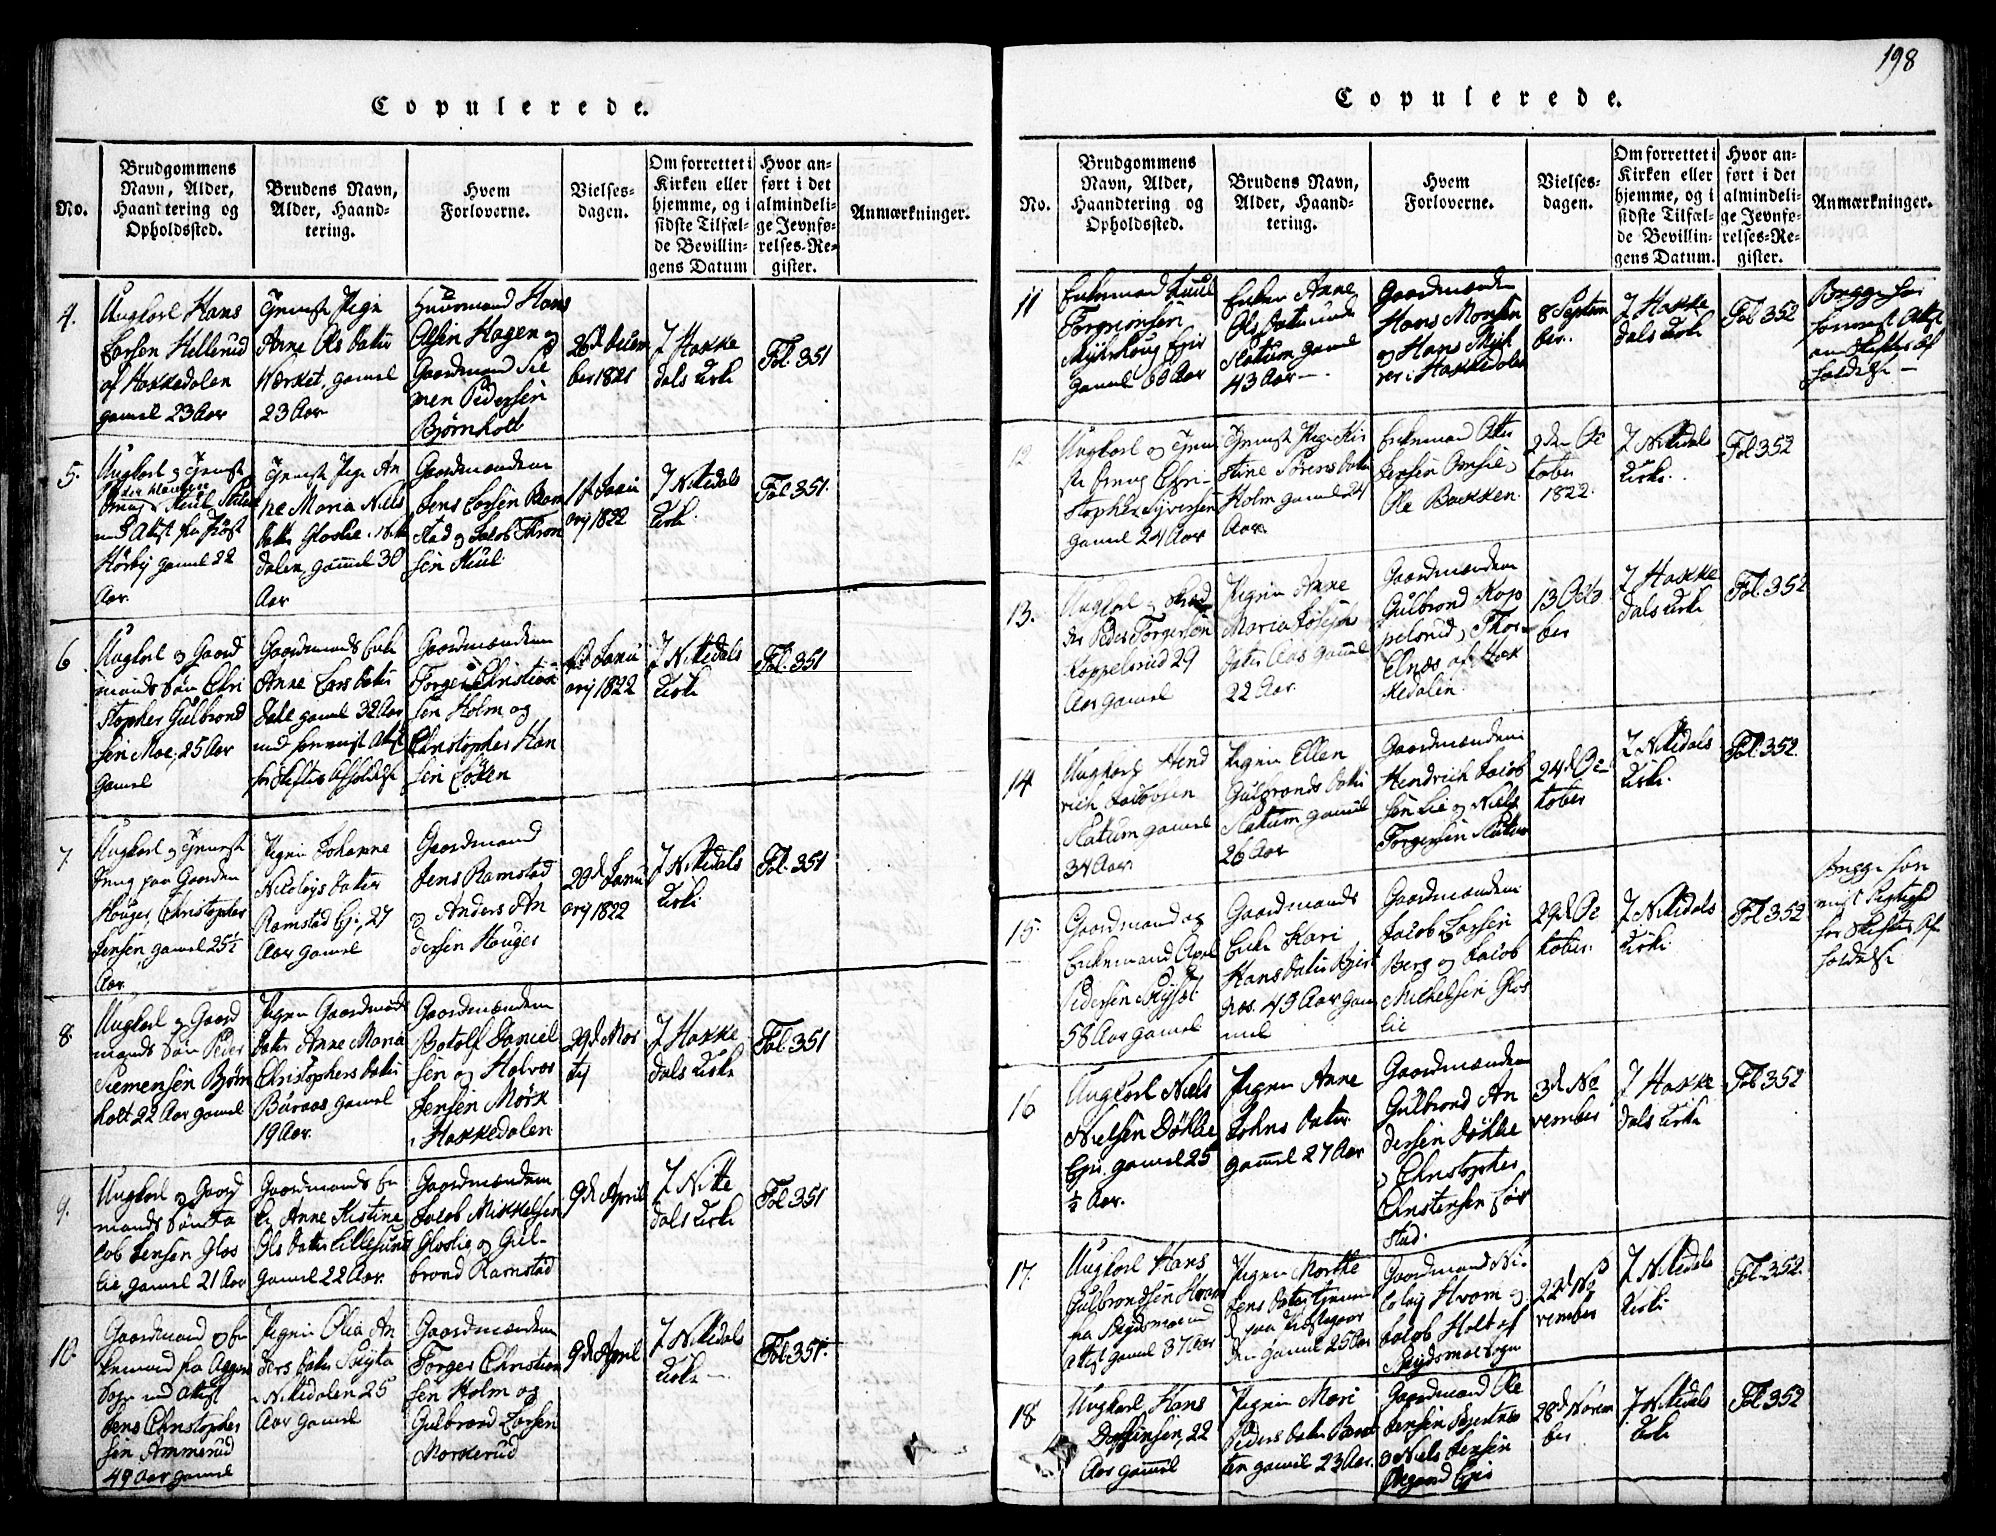 198
Copulerede.
No.
Brudgommens
Navn, Alder,
Haandtering og
Opholdssted.
Brudens Navn,
Alder, Haand-
tering.
Hvem
Forloverne.
Vielses-
dagen.
Om forrettet i
Kirken eller
hjemme, og i
sidste Tilfæl-
de Bevillin-
gens Datum
Hvor an-
ført i det
almindeli-
ge Jevnfø-
relses-Re-
gister.
Anmærkninger.
4.
Ungkarl Hans
Larsen Hellerud
af Hakkedalen
gamel 23 Aar
Anne Ols Datter
Værket, gamel
23 Aar
Huusmand Hans
Olsen Hagen og
Gaardmand Si
men Pedersen
Bjørnholt
26 d Decem
ber 1821
I Hakke
dals Kirke
Fol. 351
5.
Ungkarl og
Aar
Pige An
ne Maria Niels
Datter Gloslie i Nitte
dalen, gamel 30
Aar
Gaardmændene
Jens Larsen Ram
stad og Jacob
sen
1 Janu
arj 1822
I Nittedals
Kirke
Fol. 351.
6
Ungkarl og Gaard
mands Søn Chri
stopher Gulbrand
sen Moe, 25 Aar
Gamel
Gaardmands Enke
Anne Lars Datter
gamel 32 Aar
Gaardmændene
Torger Christian
sen Holm og
Christopher Han
sen Løken
Janu
arj 1822
I Nittedals
Kirke
Fol. 351
7.
Ungkarl og
paa Gaarden
Houger, Christopher
Jensen, gamel 25½
Aar
Pigen Johanne
Nicolays Datter
Ramstad Ejer, 27
Aar gamel
Gaardmand
Jens Ramstad
og Anders An
dersen Houger
29 d Janu
arj 1822
I Nittedals
Kirke
Fol. 351
8
Ungkarl og Gaard
mands Søn Peder
Siemensen Bjørn
holt 22 Aar gamel
Pigen Gaardmands
Datter Anne Maria
Christophers Datter
Buraas gamel
19 Aar.
Gaardmændene
Botolf Daniel
sen og Halvor
Jensen Mørk
i Hakkedalen
29 d Mar
tij
I Hakke
dals Kirke
Fol. 351
9.
Ungkarl og Gaard
mands Søn Ja
cob Jensen Glos
lie, gamel 21 Aar
Gaardmands En
ke Anne Kistine
Ols Datter Lillesund
Gamel 22 Aar.
Gaardmændene
Jacob Mikkelsen
Gloslie og Gul-
brand Ramstad
9 d April
I Nitte
dals Kirke
Fol. 351
10.
Gaardmand og En
kemand fra Aggers
Sogn med Attest
Jens Christopher
sen Ammerud
49 Aar gamel
Pigen Olia An
ders Datter Skytta
i Nittedalen 25
Aar gamel
Gaardmændene
Torger Christian
sen Holm og
Gulbrand Larsen
Morterud
9 d April
I Nittedals
Kirke
Fol. 351.
Copulerede.
No.
Brudgommens
Navn, Alder,
Haandtering og
Opholdssted.
Brudens Navn,
Alder, Haand-
tering.
Hvem
Forloverne.
Vielses-
dagen.
Om forrettet i
Kirken eller
hjemme, og i
sidste Tilfæl-
de Bevillin-
gens Datum.
Hvor an-
ført i det
almindeli-
ge Jevnfø-
relses-Re-
gister.
Anmærkninger.
11
Enkemand
Gamel Aar
Enken Anne
Ols Datter
Slatum gamel
43 Aar
Gaardmændene
Hans Monsen
og Hans Myh
rer i Hakkedalen
8 Septem
ber.
I Hakke
dals Kirke
Fol. 352
Begge har
forevist Attest
om Skiftes Af
holdelse
12
Ungkarl og
Chri-
stopher Syversen
Gamel 24 Aar
Pige Kir
stine Sørens Datter
Holm gamel 24
Aar.
Enkemand
Jensen
Ole Bakken.
2den Oc
tober
1822.
I Nittedals
Kirke.
Fol 352
13.
Ungkarl og Skræd
der Peder Torgersen
Koppelsrud 29
Aar gamel
Pigen Anne
Maria Josephs
Datter Aas gamel
22 Aar.
Gaardmændene
Gulbrand Kop
pelsrud, Thor
Elnæs af Hak
kedalen.
13 Octo
ber
I Hakke
dals Kirke
Fol. 352
14
Ungkarl Hend
rich Jacobsen
Slatum gamel
34 Aar.
Pigen Ellen
Gulbrands Datter
Slatum gamel
26 Aar
Gaardmændene
Hendrich Jacob
sen Lie og Niels
Torgersen Slatum
24 d Oc
tober
I Nittedals
Kirke.
Fol. 352.
15.
Gaardmand og
Enkemand Axel
Pedersen
58 Aar gamel
Gaardmands
Enke Kari
Hans Datter
49 Aar gam
mel
Gaardmændene
Jacob Larsen
Berg og Jacob
Michelsen Glos
lie
29 d Oc
tober.
I Nittedals
Kirke
Fol 352
Begge fore
vist Rigtighed
for Skiftes Af
holdelse
16
Ungkarl Niels
Nielsen Døhlie
Ejer. gamel 25
½ Aar.
Pigen Anne
Johns Datter
gamel 27 Aar
Gaardmændene
Gulbrand An
dersen Døhlie
og Christopher
Christensen
stad.
3 d No
vember
I Hakke
dals Kirke
Fol 352
17.
Ungkarl Hans
Gulbrandsen Hvam
fra Skydsmoe med
Attest gamel 37 Aar
Pigen Marthe
Jens Datter
paa Præstegaar
den gamel 25 Aar
Gaardmand Ni
colay Hvam og
Jacob Holt af
Skydsmoe Sogn
22 d No
vember
I Nittedals
Kirke
Fol. 352.
18
Ungkarl Hans
22
Aar gamel
Pigen Mari
Peders Datter
gamel 23 Aar.
Gaardmand Ole
Jensen
og Niels Jensen
Ejer
28 d Novem
ber
I Nittedals
Kirke
Fol 352